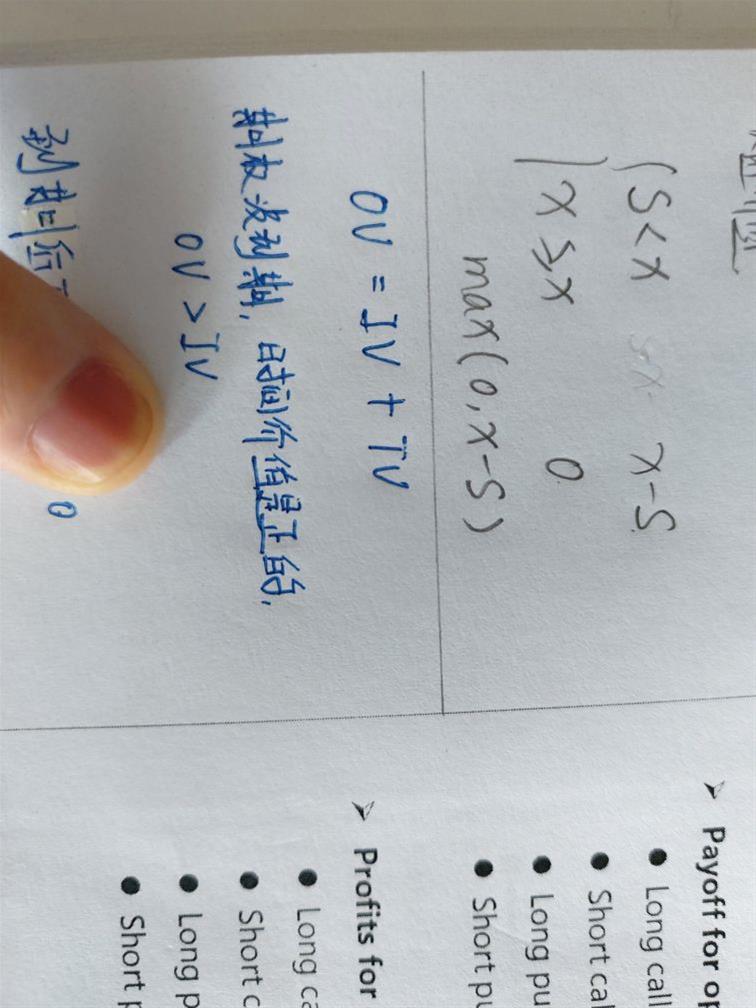 S<x x-S
x≥x 0
max(0,x-S)
OV = IV + TV
期权没到期,时间价值是正的,
OV > IV
到期日价
0
➤ Payoff for op
● Long call
● Short cal
● Long pu
● Short pu
➤ Profits for
● Long ca
● Short c
● Long p
● Short p